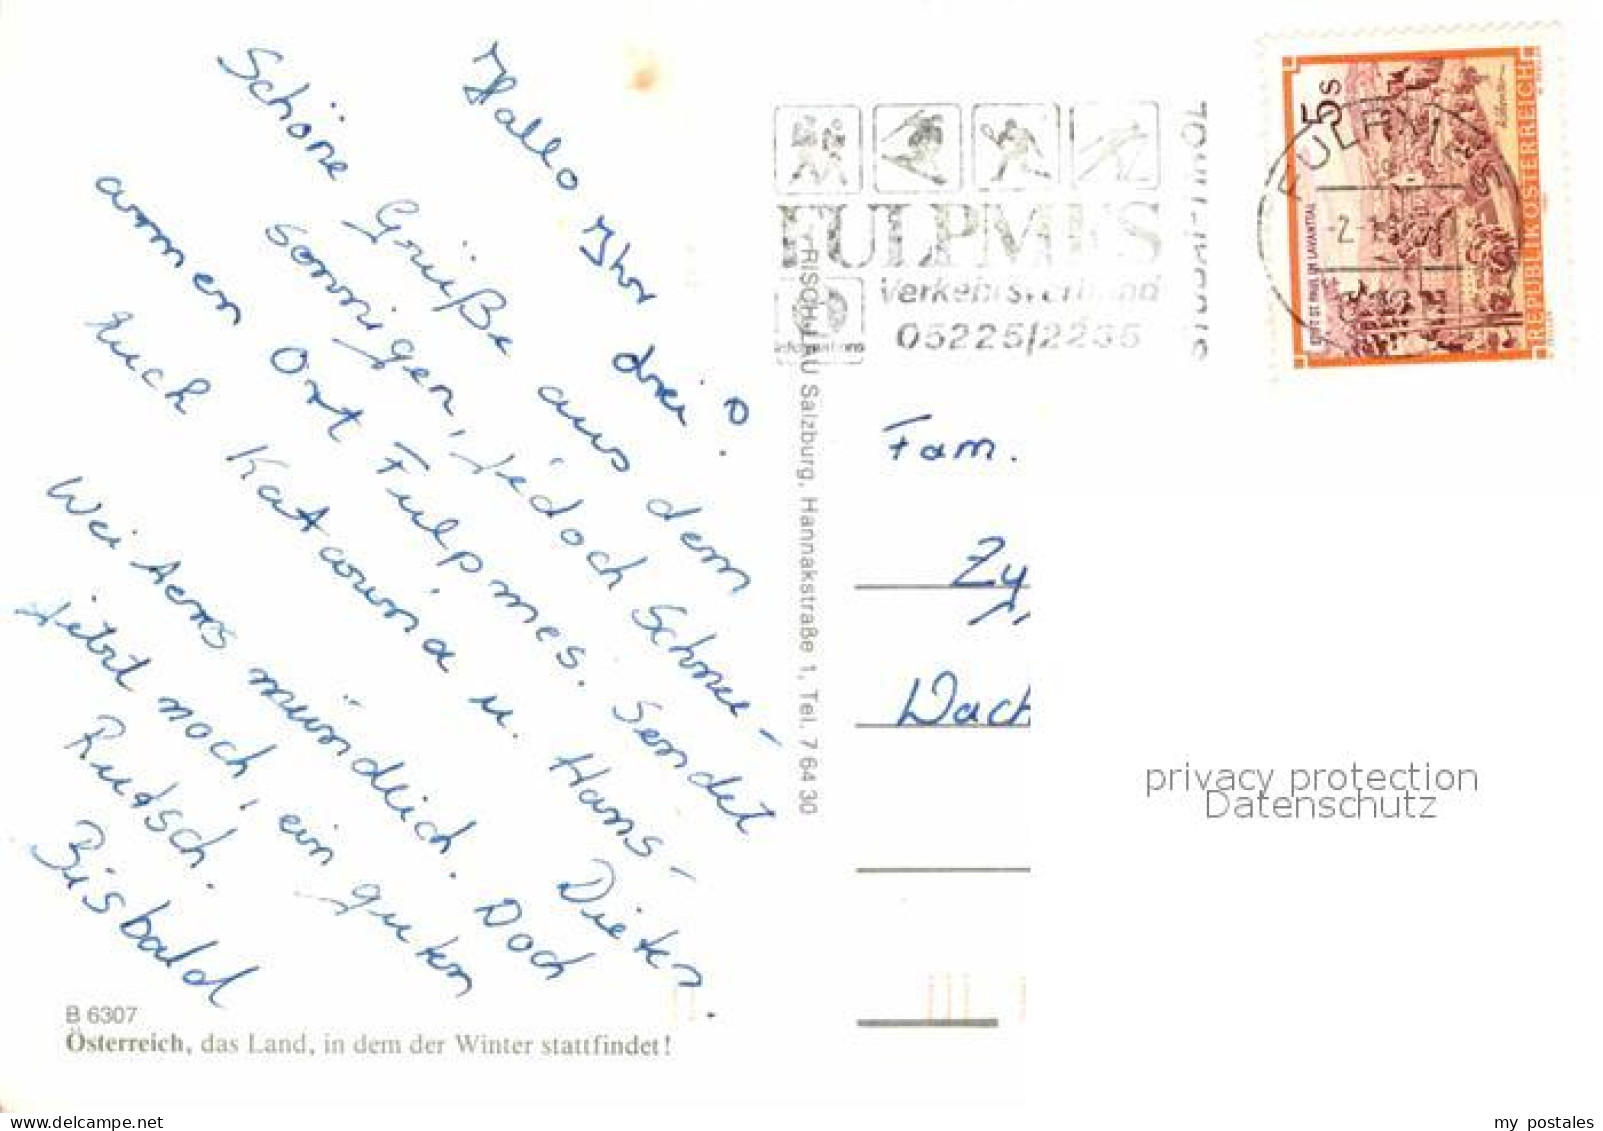 Hallo Ihr drei!
Schöne Grüße aus dem
sonnigen, jedoch Schnee-
armen Ort Fulpmes. Sendet
Euch Katarina u. Hans-
Dieter.
Weiteres mündlich. Doch
jetzt noch, ein guten
Rutsch.
Bisbald
B 6307
Österreich, das Land, in dem der Winter stattfindet!
RISCH-LAU Salzburg, Hannakstraße 1, Tel. 7 64 30
FULPMES
Verkehrsverband
05225/2235
Informations
5 S
STIFT ST. PAUL IM LAVANTTAL
REPUBLIK ÖSTERREICH
Fam.
Zy
Wach
privacy protection
Datenschutz
Bildnummer: B 6307
my postales